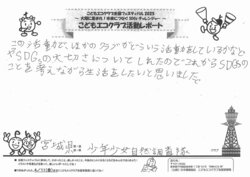 こどもエコクラブ全国フェスティバル2025
大阪に集まれ！未来につなぐSDGsチャレンジャー
こどもエコクラブ活動レポート
この活動で、ほかのクラブがどういう活動をしているかなど
やSDGsの大切さについてしれたのでこれからSDGsの
ことを考えながら生活をしたいと思いました。
宮城県
少年少女自然調査隊
クラブ